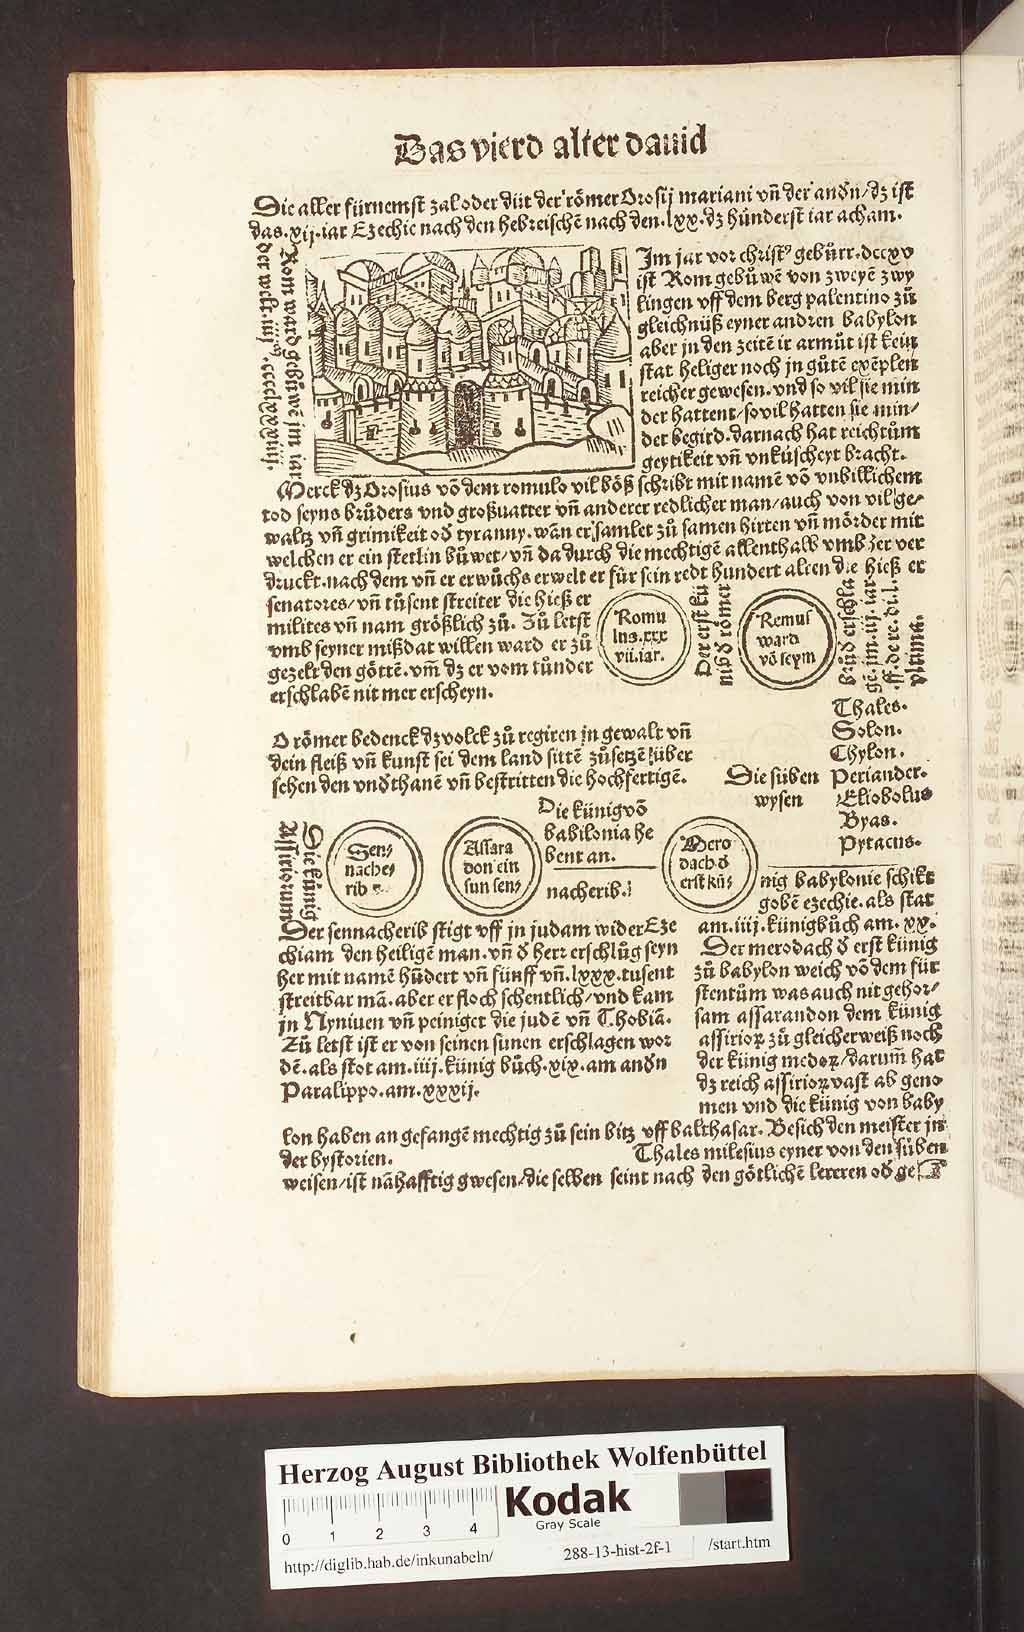 Das vierd alter dauid
Die aller fürnemst zal oder düt der römer Orosij mariani vñ der andñ/dz ist
das.xij.iar Ezechie nach den hebreischē nach den.lxx.dz hünderst iar acham.
Rom ward gebůwē im iar
der welt.iiij
Im jar vor christꝰ gebürr.dccxv
ist Rom gebůwē von zweyē zwy
lingen vff dem berg palentino zů
gleichnüß eyner andren babylon
aber jn den zeitē ir armůt ist kein
stat heliger noch jn gůtē exēplen
reicher gewesen.vnd so vil sie min
der hattent/so vil hatten sie min/
der begird.darnach hat reichtům
geytikeit vñ vnküscheyt bracht.
Merck dz Orosius võ dem romulo vil böß schribt mit namē võ vnbillichem
tod seyns brůders vnd großuatter vñ anderer redlicher man/auch von vil ge/
waltz vñ grimikeit od tyranny.wān er samlet zů samen hirten vñ mörder mit
welchen er ein stetlin bůwet/vñ da durch die mechtigē allenthalb vmb her ver
druckt.nach dem vñ er erwůchs erwelt er für sein redt hundert alten die hieß er
senatores/vñ tůsent streiter die hieß er
milites vñ nam größlich zů. Zů letst
vmb seyner mißdat willen ward er zů
gezelt den göttē.vm̄ dz er vom tůnder
erschlabē nit mer erscheyn.
Romu
lus.xxx
vij.iar.
Der erst kü
nig d römer
Remus
ward
võ seym
brůd erschla
gē.im.iij.iar
.ff.de re.di.l.
vltima.
O römer bedenck dz volck zů regiren jn gewalt vñ
dein fleiß vñ kunst sei dem land sittē zůsetzē über
sehen den vndthanē vñ bestritten die hochfertigē.
Die süben
wysen
Thales.
Solon.
Chylon.
Periander.
Eliobolus
Byas.
Pytacus.
Die künig
Assiriorum
Sen/
nache/
rib
Assara
don ein
sun sen/
nacherib.
Die künig võ
babilonia he
bent an.
Mero
dach d
erst kü/
nig babylonie schikt
gobē ezechie.als stat
am.iiij.künigbůch am.xx.
Der sennacherib stigt vff jn judam wider Eze
chiam den heiligē man.vñ d herr erschlůg seyn
her mit namē hūdert vñ fünff vñ.lxxx.tusent
streitbar mā.aber er floch schentlich/vnd kam
jn Nyniuen vñ peiniget die judē vñ Thobiā.
Zů letst ist er von seinen sunen erschlagen wor
dē.als stot am.iiij.künig bůch.xix.am andñ
Paralippo.am.xxxij.
Der merodach d erst künig
zů babylon weich võ dem für
stentům was auch nit gehor/
sam assarandon dem künig
assirioꝝ zů gleicherweiß noch
der künig medoꝝ/darum̄ hat
dz reich assirioꝝ vast ab geno
men vnd die künig von baby
lon haben angefangē mechtig zů sein bitz vff balthasar. Besich den meister jn
der hystorien.
Thales milesius eyner von den süben
weisen/ist nāhafftig gwesen/die selben seint nach den götlichē lereren od ge
Herzog August Bibliothek Wolfenbüttel
0 1 2 3 4
Kodak
Gray Scale
http://diglib.hab.de/inkunabeln/
288-13-hist-2f-1
/start.htm